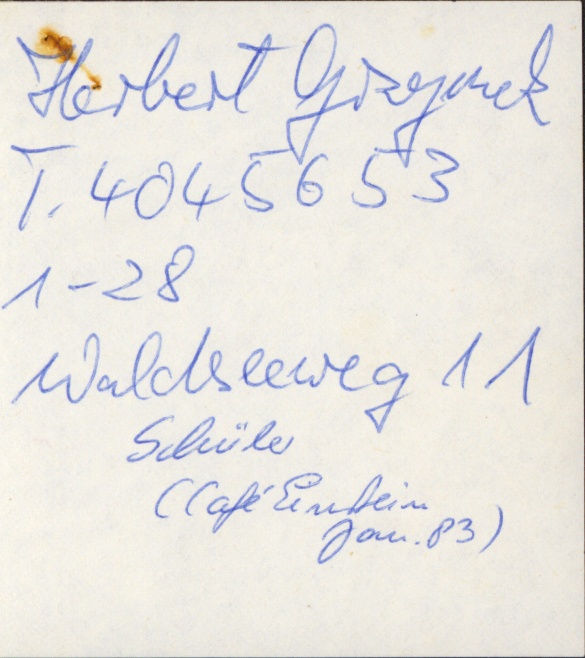 Herbert
T. 4045653
1-28
Waldseeweg 11
Schüler
(Café Einstein
Jan. 83)